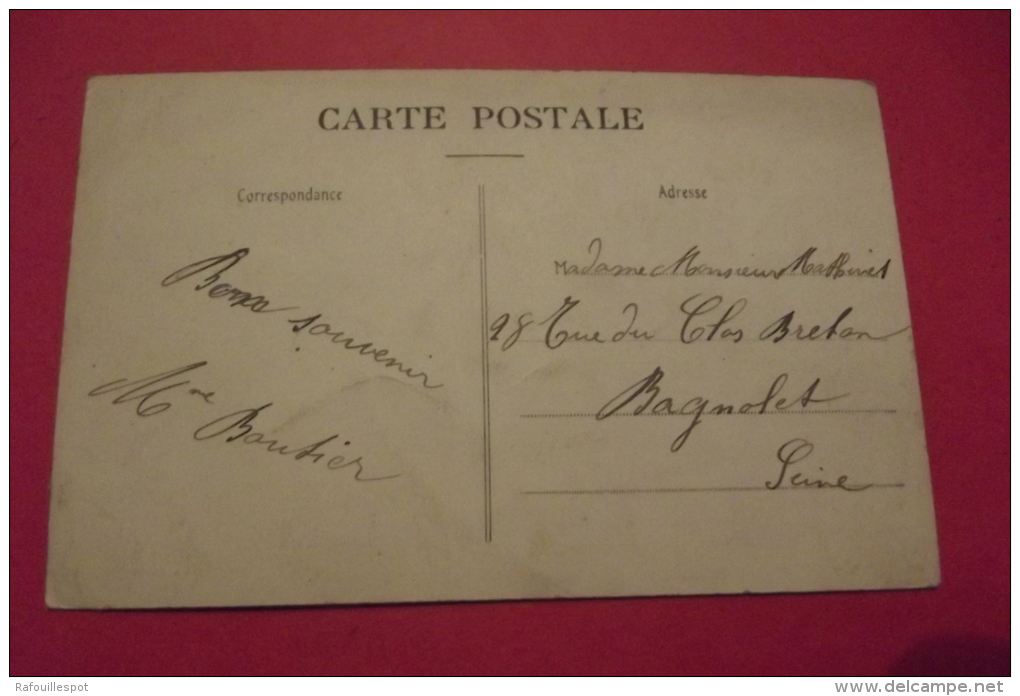 CARTE POSTALE
Correspondance
Adresse
Bons souvenir
Mme Boutier
Madame Monsieur Mathivet
98 Rue du Clos Breton
Bagnolet
Seine
Rafouillespot
www.delcampe.net